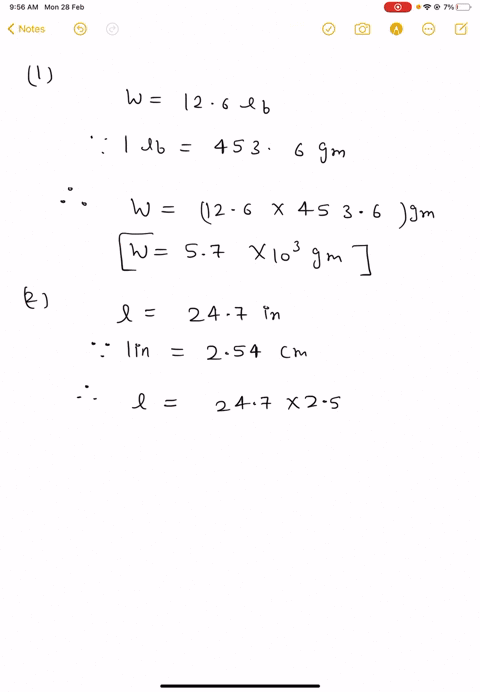 9:56 AM Mon 28 Feb 7%
Notes
(1)
W = 12.6 lb
∵ 1 lb = 453. 6 gm
∴ W = (12.6 x 453.6 )gm
[W = 5.7 x10³ gm]
(2)
l = 24.7 in
∵ 1in = 2.54 cm
∴ l = 24.7 x 2.5